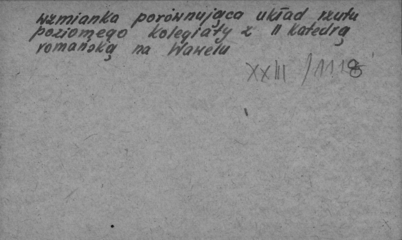 wzmianka porównująca układ rzutu
poziomego kolegiaty z II katedrą
romańską na Wawelu
XXIII / 1118